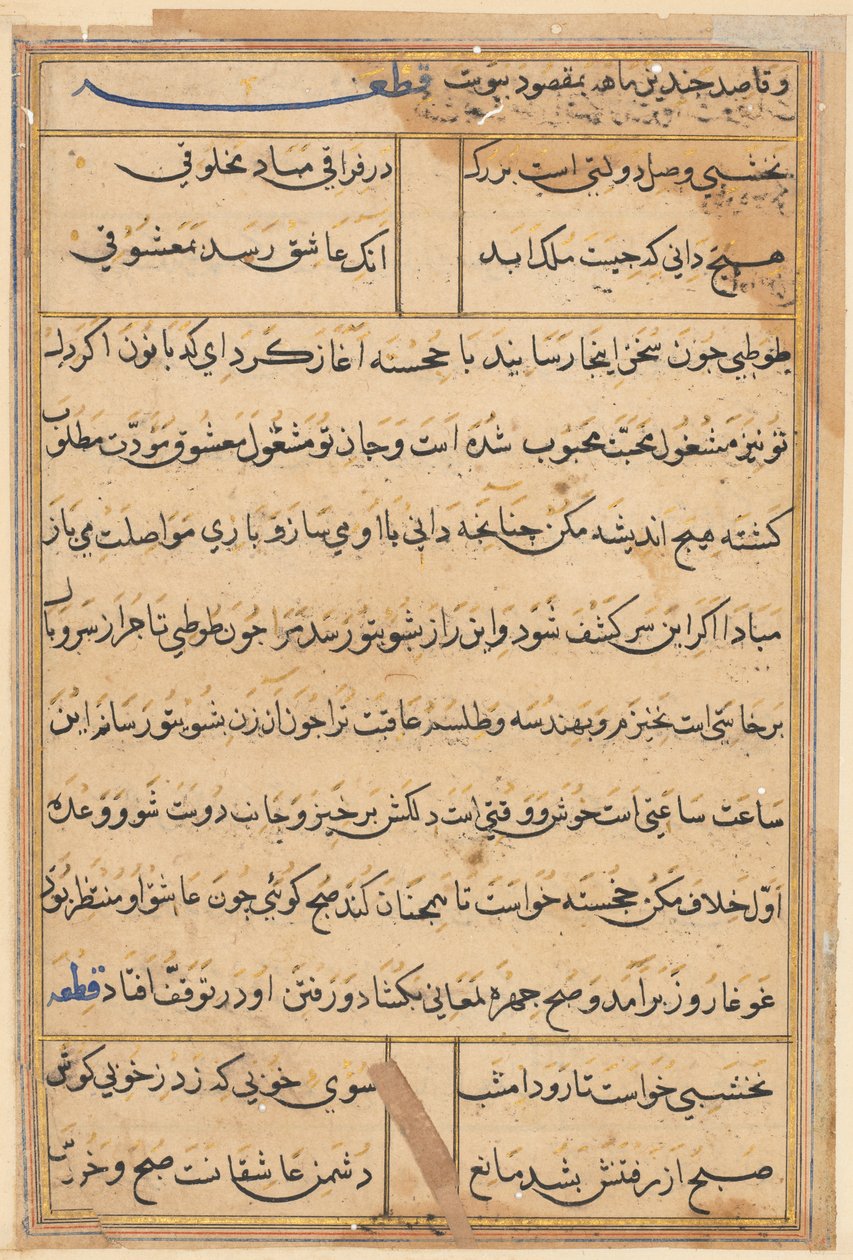 و قاصد چندین ماهه بمقصود پیوست قطعه
نخشبی وصل دولتی است بزرک در فراقی مباد مخلوقی
هیچ دانی که چیست ملک ابد انک عاشق رسد بمعشوقی
طوطی چون سخن اینجا رسانید با خجسته آغاز کرد ای کدبانون اکر دل
تو نیز مشغول محبت محبوب شده است و جان تو مشغول معشوق مودت مطلوب
کشته هیچ اندیشه مکن چنانچه دانی باا و می ساز و باری مواصلت می باز
مبادا اکر این سر کشف شود و این راز بشوی تو رسد مرا چون طوطی تاجر از سر و بال
بر خاستی است بخیزم و بهندسه و طلسم عاقبت ترا چون آن زن بشوی تو رسانم این
ساعت ساعتی است خوش و وقتی است دلکش برخیز و جانب دوست شو و وعده
اول خلاف مکن خجسته خواست تا همچنان کند صبح کوئی چون عاشق او منتظر بود
غوغا روز برآمد و صبح چهره لمعانی بکشاد و رفتن او در توقف افتاد قطعه
نخشبی خواست تا رود امشب سوی خوبی که زد ز خوبی کوش
صبح از رفتنش بشد مانع دشمن عاشقانست صبح و خروس